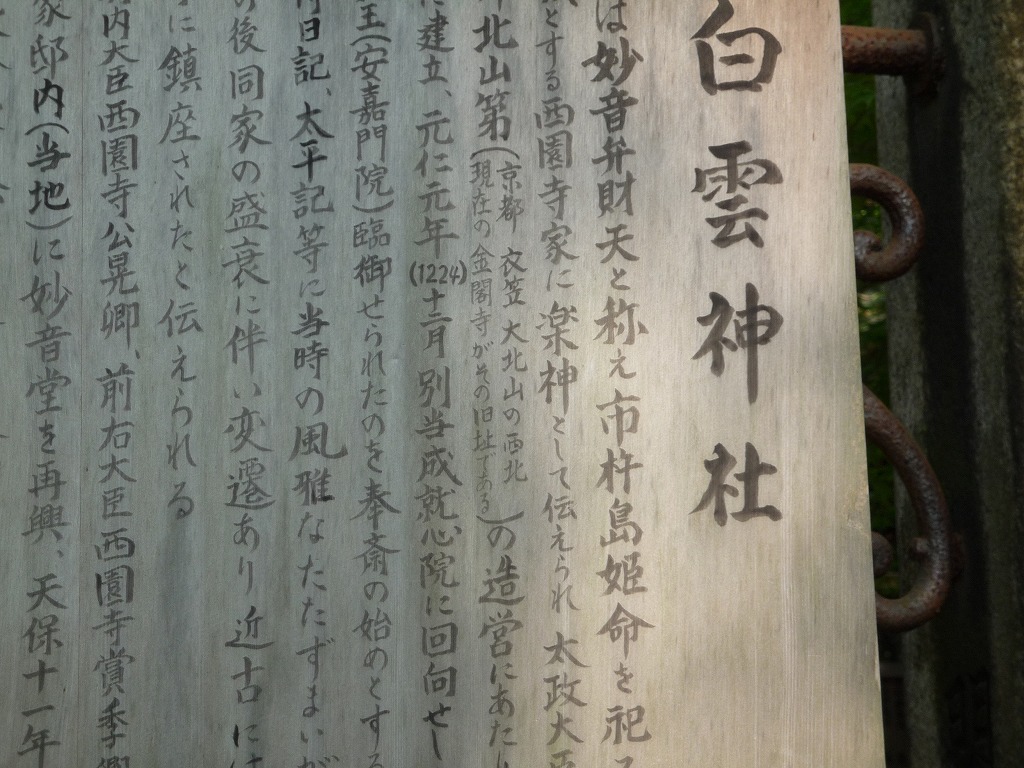 白雲神社
は妙音弁財天と称え市杵島姫命を祀
とする西園寺家に楽神として伝えられ 太政大臣
北山第(京都 衣笠 大北山の西北 現在の金閣寺がその旧址である)の造営にあたり
建立、元仁元年(1224)十二月別当成就心院に回向せし
王(安嘉門院)臨御せられたのを奉斎の始めとする
日記、太平記等に当時の風雅なたたずまいが
後同家の盛衰に伴い変遷あり近古に
に鎮座されたと伝えられる
内大臣西園寺公晃卿、前右大臣西園寺賞季卿
家邸内(当地)に妙音堂を再興、天保十一年